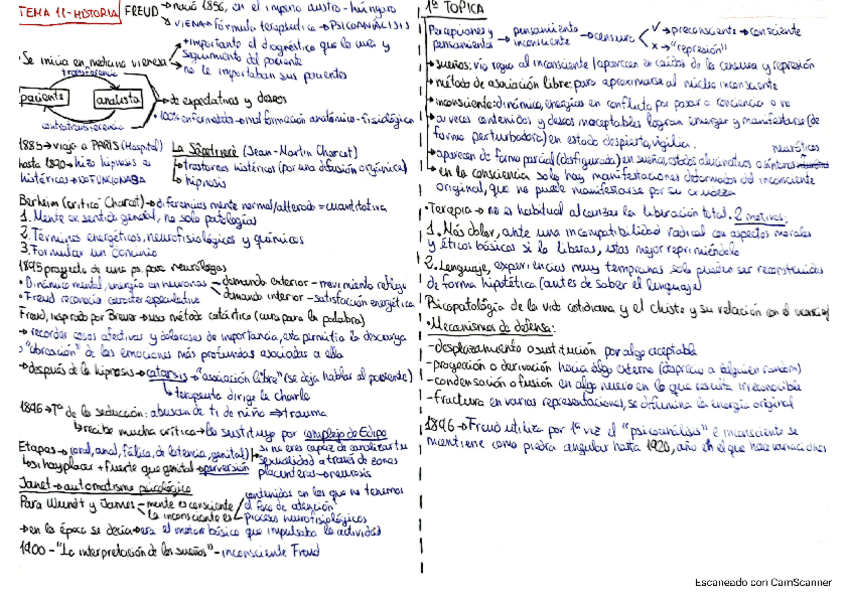 TEMA 11-HISTORIA
FREUD → nació 1856, en el imperio austro-húngaro
→ VIENA → fórmula terapéutica → PSICOANÁLISIS
· Se inicia en medicina vienesa → + importante el diagnóstico que la cura y
seguimiento del paciente
→ no le importaban sus pacientes
transferencia
paciente
analista
→ de expectativas y deseos
contratransferencia
· 100% enfermedad → malformación anatómico-fisiológica
1885 → viaja a PARIS (Hospital) La Salpetrière (Jean-Martin Charcot)
hasta 1890 → hizo hipnosis a
→ trastornos histéricos (por una disfunción orgánica)
histéricos → NO FUNCIONABA
→ hipnosis
Berheim (critica Charcot) → diferencias mente normal/alterada = cuantitativa
1. Mente en sentido general, no solo patologías
2. Términos energéticos, neurofisiológicos y químicos
3. Formular un
1895 proyecto de una ps. para neurólogos
· Dinámica mental, energía en neuronas → demanda exterior - movimiento reflejo
· Freud reconocía carácter especulativo → demanda interior - satisfacción energética
Freud, inspirado por Breuer → uso método catártico (cura para la palabra)
→ recordar cosas afectivas y dolorosas de importancia, esto permitía la descarga
o "liberación" de las emociones más profundas asociadas a ella
→ después de la hipnosis → catarsis → "asociación libre" (se deja hablar al paciente)
→ terapeuta dirige la charla
1896 → Tª de la seducción: abusan de ti de niño ⇒ trauma
→ recibe mucha crítica → la sustituye por complejo de Edipo
Etapas → (oral, anal, fálica, de latencia, genital)
si no eres capaz de canalizar tu
→ si hay placer + fuerte que genital → perversión
sexualidad a través de zonas
placenteras → neurosis
Janet → automatismo psicológico
Para Wundt y James
mente es consciente
contenidos en los que no tenemos
el foco de atención
la inconsciente es
procesos neurofisiológicos
→ en la época se decía → era el motor básico que impulsaba la actividad
1900 - "La interpretación de los sueños" - inconsciente Freud
1ª TOPICA
Percepciones y
pensamientos
→ pensamiento
inconsciente
→ censura
✓ → preconsciente → consciente
x → "represión"
→ sueños: vía regia al inconsciente (aparecen en caídas de la censura y represión
→ método de asociación libre: para aproximarse al núcleo inconsciente
→ inconsciente: dinámica, energías en conflicto por pasar a conciencia o no
→ a veces contenidos y deseos inaceptables logran emerger y manifestarse (de
forma perturbadora) en estado despierto, vigilia.
neuróticos
→ aparecen de forma parcial (desfigurada) en sueños, estados alucinatorios o síntomas
→ en la consciencia solo hay manifestaciones deformadas del inconsciente
original, que no puede manifestarse por su crudeza
· Terapia → no es habitual alcanzar la liberación total. 2 motivos:
1. Más dolor, ante una incompatibilidad radical con aspectos morales
y éticos básicos si lo liberas, estas mejor reprimiéndolo
2. Lenguaje, experiencias muy tempranas solo pueden ser reconstruidas
de forma hipotética (antes de saber el lenguaje)
Psicopatología de la vida cotidiana y el chiste y su relación con el
· Mecanismos de defensa:
- desplazamiento o sustitución por algo aceptable
- proyección o derivación hacia algo externo (desprecio a alguien random)
- condensación o fusión en algo nuevo en lo que resulta irreconocible
- fractura en varias representaciones, se difumina la energía original
1896 → Freud utiliza por 1ª vez el "psicoanálisis" e inconsciente se
mantiene como piedra angular hasta 1920, año en el que hace variaciones
Escaneado con CamScanner